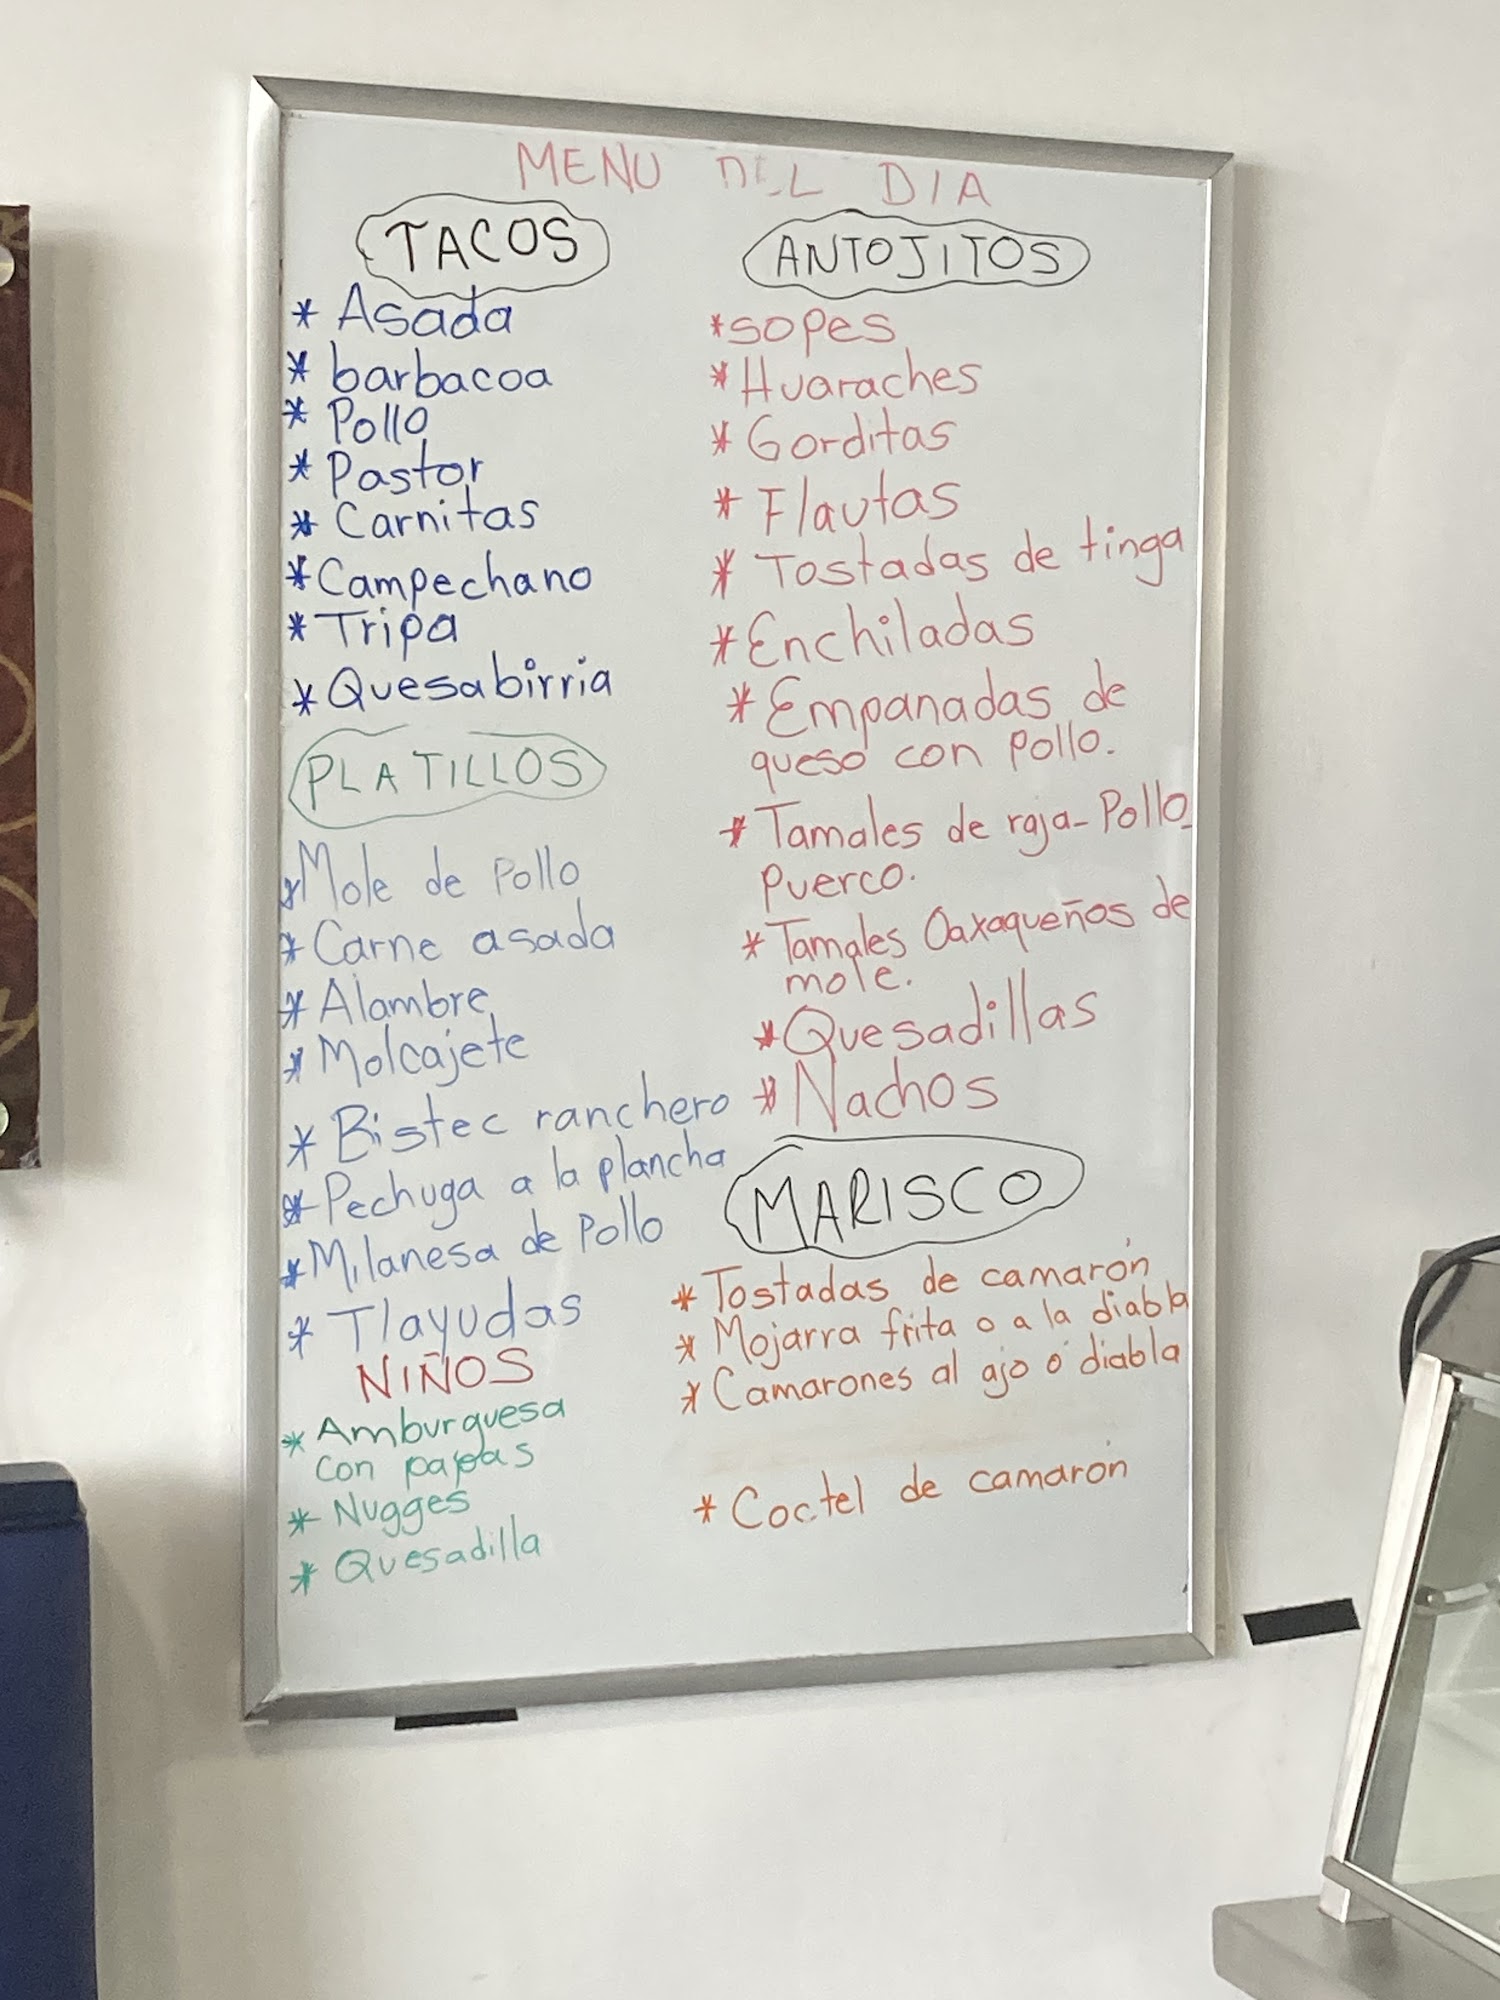 MENU DEL DIA
TACOS
* Asada
* barbacoa
* Pollo
* Pastor
* Carnitas
* Campechano
* Tripa
* Quesabirria
PLATILLOS
* Mole de Pollo
* Carne asada
* Alambre
* Molcajete
* Bistec ranchero
* Pechuga a la plancha
* Milanesa de Pollo
* Tlayudas
NIÑOS
* Amburguesa
con papas
* Nugges
* Quesadilla
ANTOJITOS
* sopes
* Huaraches
* Gorditas
* Flautas
* Tostadas de tinga
* Enchiladas
* Empanadas de
queso con pollo.
* Tamales de raja-Pollo-
Puerco.
* Tamales Oaxaqueños de
mole.
* Quesadillas
* Nachos
MARISCO
* Tostadas de camarón
* Mojarra frita o a la diabla
* Camarones al ajo o diabla
* Coctel de camarón